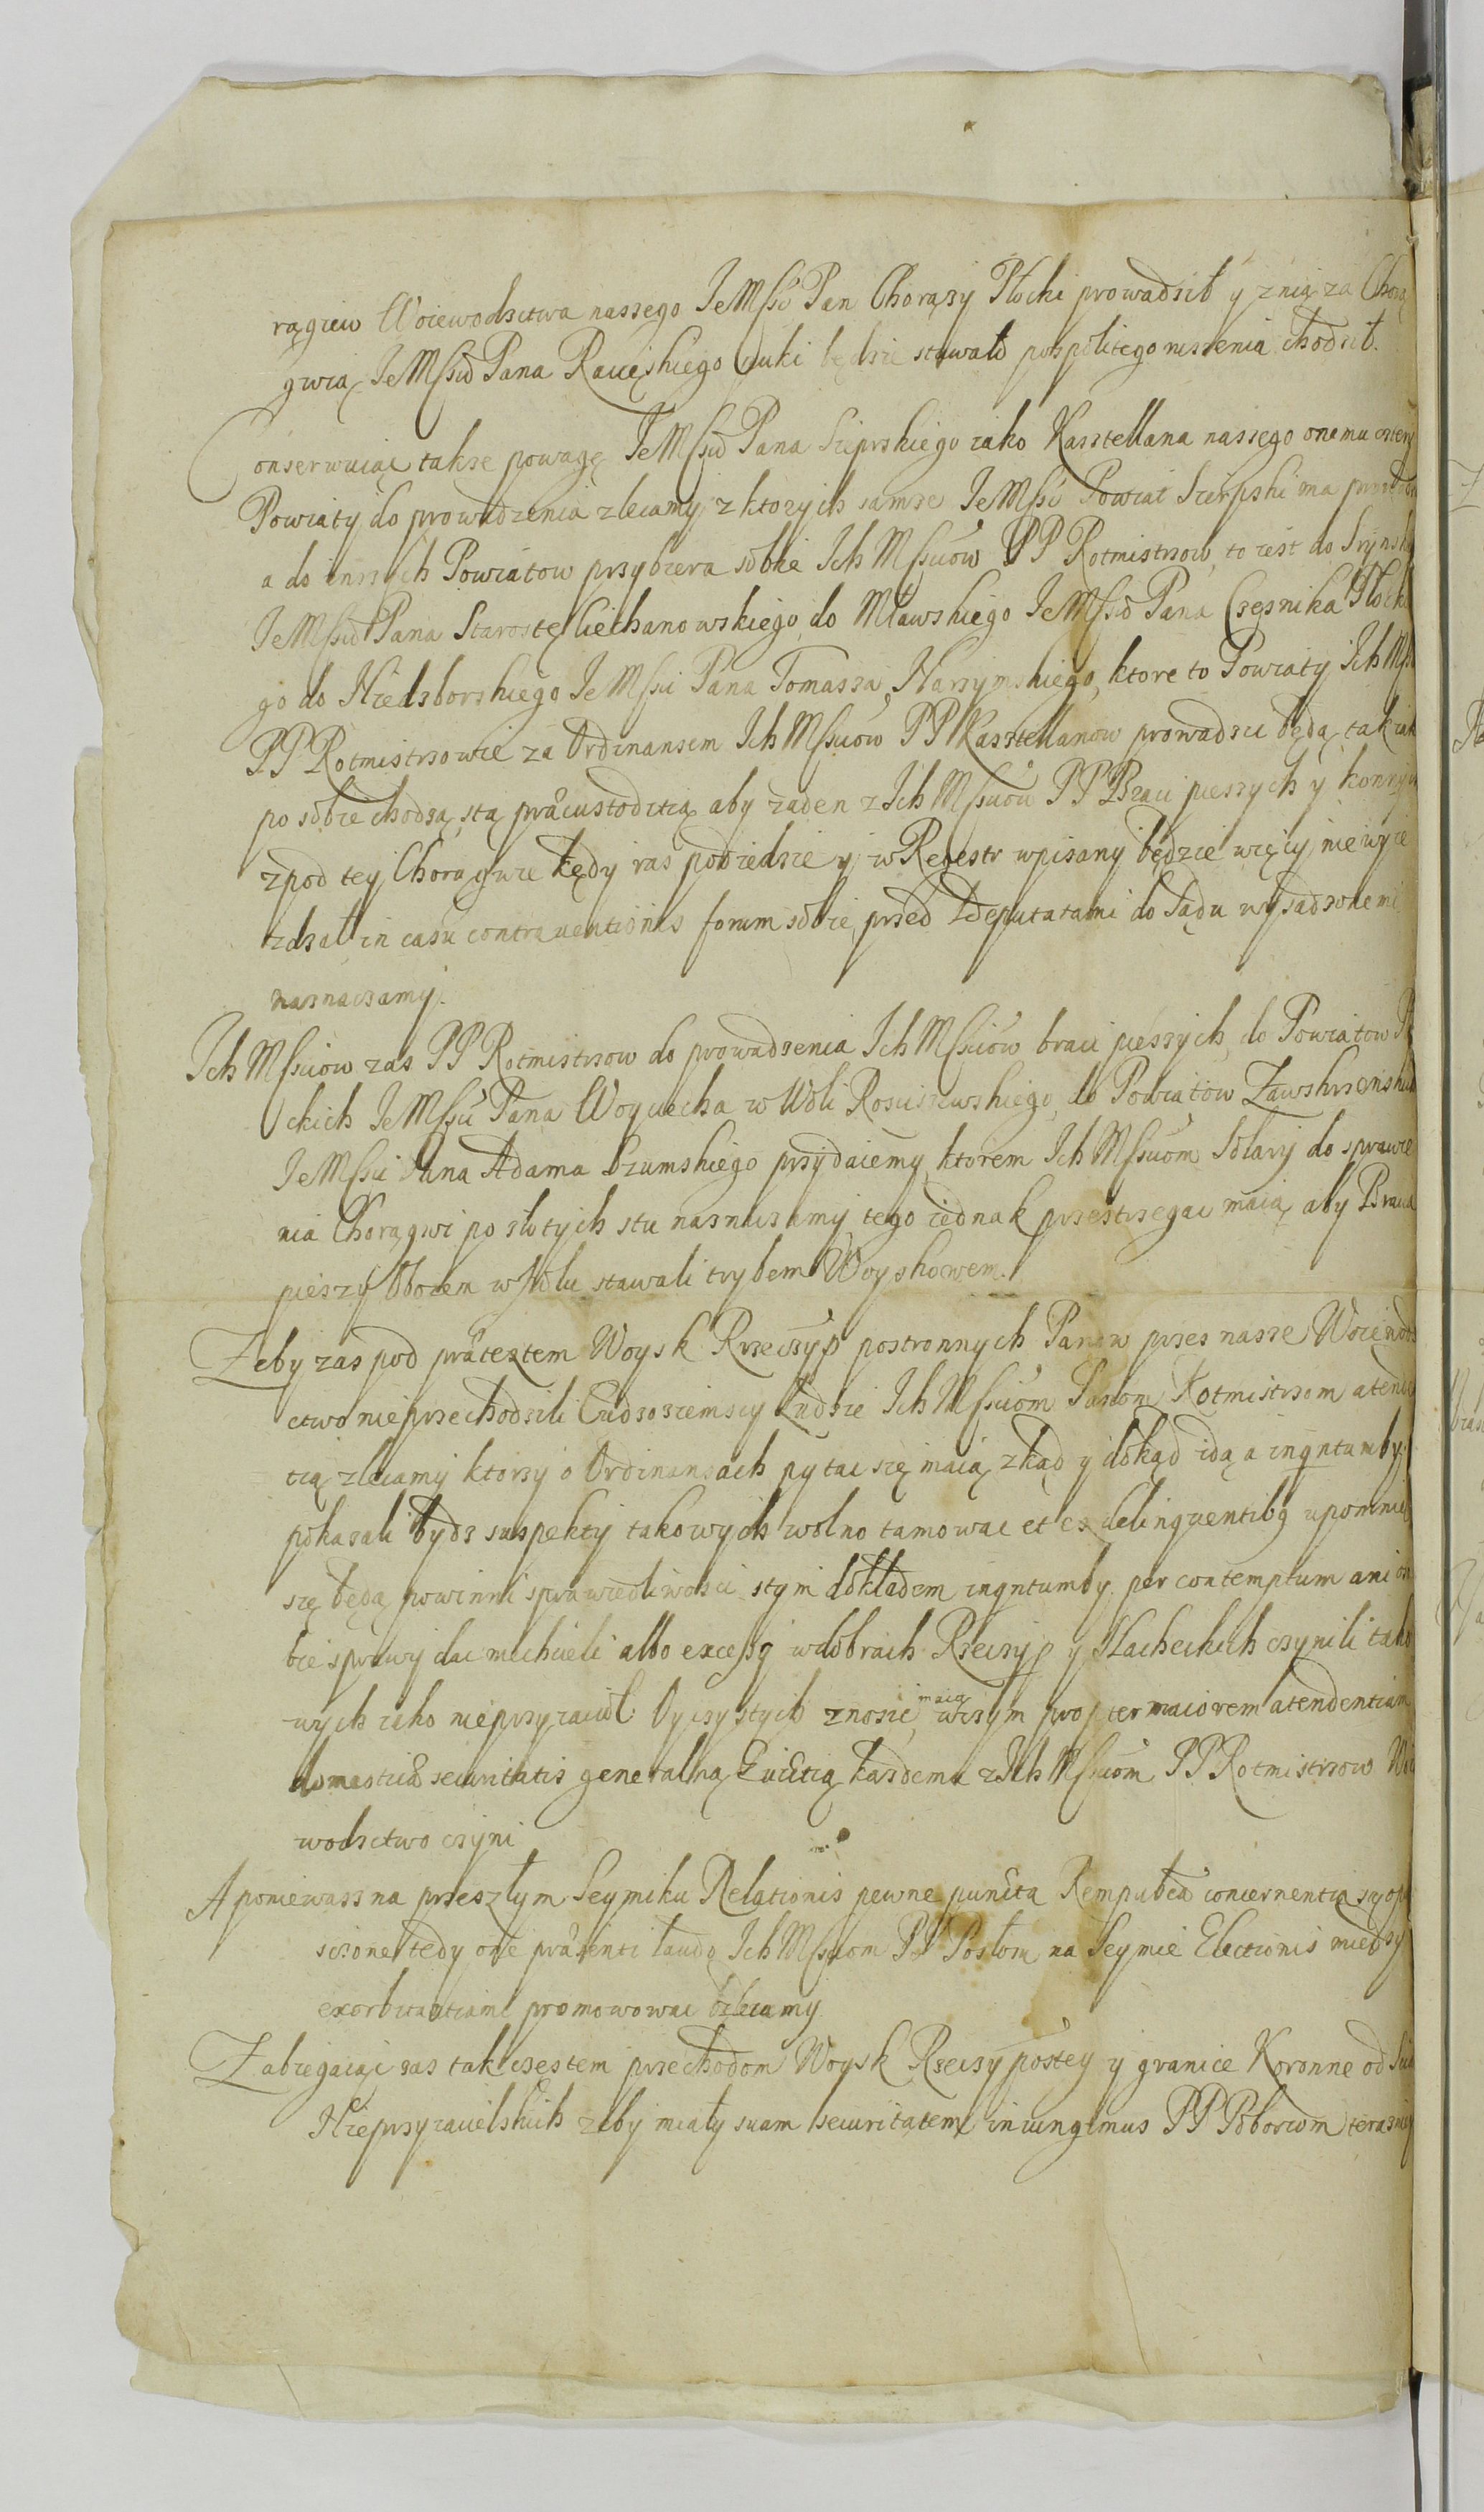 rągiew Woiewodsctwa nassego JeMsśc Pan Chorąsy Płocki prowadsił y z nią za Chorą
gwią JeMsśco Pana Raciąskiego puki będsie stawało pospolitego russenia chodsił.
Conserwuiąc takse powagę JeMsśco Pana Sierpskiego iako Kasstellana nassego onemu cztery
Powiaty do prowadzenia zlecamy z ktorych samse JeMsśc Powiat Sierpski ma
a do inssych Powiatow przybiera sobie Ich Mssciow PP Rotmistrsow, to iest do
JeMsśco Pana Starostę Ciechanowskiego, do Mławskiego JeMsśco Pana Cześnika Płocki
go do Niedsborskiego JeMssci Pana Tomassa Narzymskiego, ktore to Powiaty Ich Mss
PP Rotmistrsowie za Ordinansem Ich Mssciow PP Kasstellanow prowadsic będą, tak iak
po sobie chodsą, s tą præcustoditią aby zaden z Ich Mssciow PP Braci pieszych y konnych
z pod tey Chorągwie kędy ras podiedsie y w Regestr wpisany będzie więcy nie wyie
zdsał in casu contrauentionis forum sobie przed Deputatami do Sądu wysadsonemi
nasnacsamy.
Ich Mssciow zas PP Rotmistrsow do prowadsenia Ich Mssciow braci pieszych, do Powiatow
ckich JeMssci Pana Woyciecha w Woli Rosciszewskiego, do Powiatow Zawskrzenskich
JeMssci Pana Adama Szumskiego przydaiemy, ktorem Ich Mssciom Solary do sprawie
nia Chorągwi po słotych stu nasnacsamy tego iednak przestrsegac maią aby Bracia
pieszy Obozem w Polu stawali trybem Woyskowem.
Zeby zas pod prætextem Woysk Rzeczyp postronnych Panow prses nasse Woiewods
ctwo nie prsechodsili Cudsosiemscy Ludsie Ich Mssciom Panom Rotmistrsom atendę
tią zlecamy ktorsy o Ordinansach pytac się maią, zkąd y dokąd idą a inqntumby
pokasali bydz suspekty takowych wolno tamowac et ex delinquentibq upomniec
się będą powinni sprawiedliwosci s tym dokładem inqntumby per contemptum ani o so
bie sprawy dac niechcieli albo excessy w dobrach Rzeczyp y Slacheckich csynili tako
wych iako nieprsyiaciol Oycsystych znosic maią, wczym propter maiorem atendentiam
domesticæ securitatis generalną Euictią kasdemu z Ich Mssciom PP Rotmistrsow Woie
wodsctwo csyni
A poniewass na prseszłym Seymiku Relationis pewne puncta Rempubcā concernentia są opu
scsone tedy one præsenti laudo Ich Mssciom PP Posłom na Seymie Electionis miedsy
exorbitantiami promowowac zlecamy
Zabiegaiąc sas tak csęstem prsechodom Woysk Rzeczypostey y granice Koronne od
Nieprsyiacielskich zeby miały suam securitatem iniungimus PP Poborcom terasniey